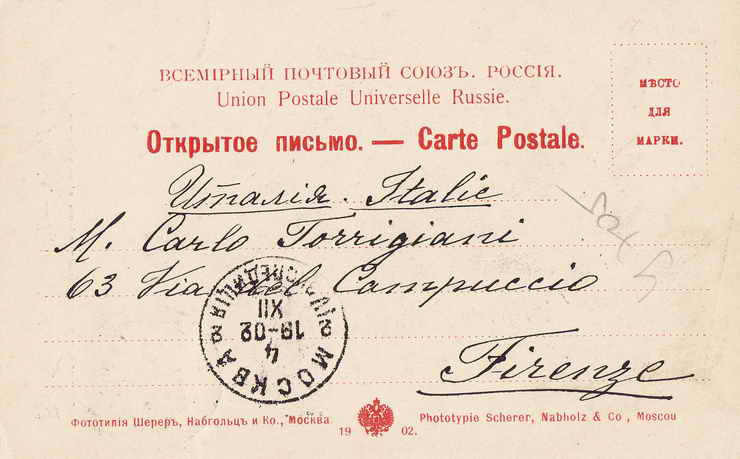 ВСЕМІРНЫЙ ПОЧТОВЫЙ СОЮЗЪ. РОССІЯ.
Union Postale Universelle Russie.
Открытое письмо. — Carte Postale.
МѢСТО
ДЛЯ
МАРКИ.
Италія. Italie
M. Carlo Torrigiani
63 Via del Campuccio
Firenze
МОСКВА
4
XII
19-02
Фототипія Шереръ, Набгольцъ и Ко., Москва.
1902.
Phototypie Scherer, Nabholz & Co, Moscou